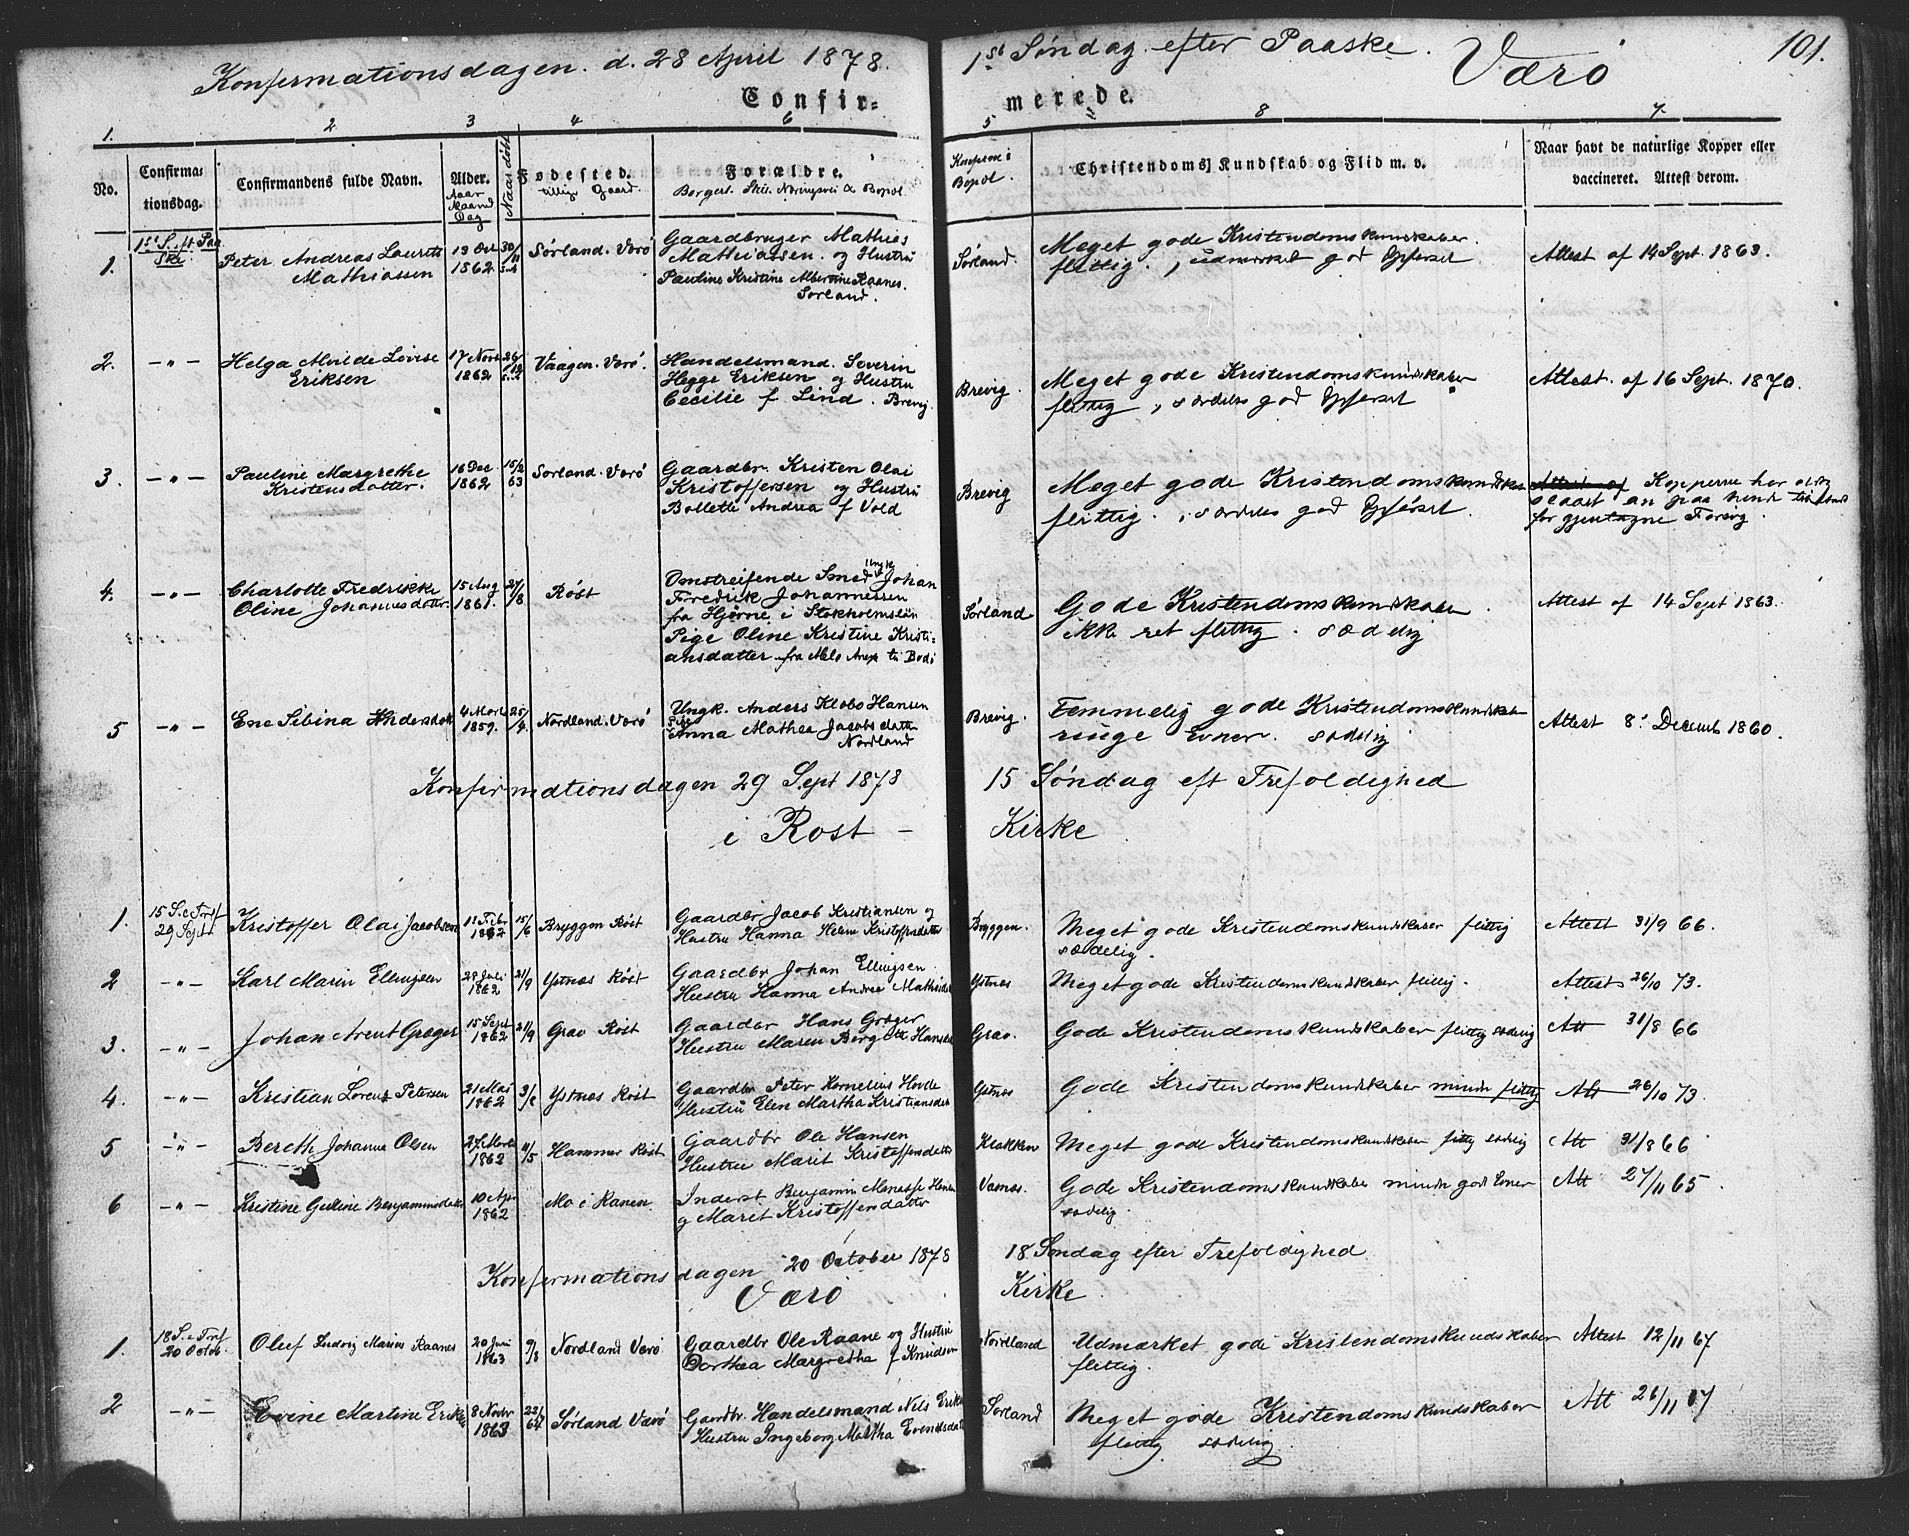 Konfirmationsdagen. d. 28 April 1878. 1st Søndag efter Paaske. Værø 101.
Confir- merede.
1. 2 3 4 6 5 8 7.
No. Confirmationsdag. Confirmandens fulde Navn. Alder. Aar Maaned Dag Naar døbt Fødested. tillige Gaard. Forældre. Borgerl. Still. Næringsvei & Bopæl. Bopæl. Christendoms Kundskab og Flid m. v. Naar havt de naturlige Kopper eller vaccineret. Attest derom.
1. 1st S. eft Paaske Peter Andreas Laurits Mathiassen 13 Oct 1862 30/11 Sørland. Værø Gaardbruger Mathias Mathiassen og Hustru Pauline Kristine Albertine Raanes. Sørland. Sørland. Meget gode Kristendomskundskaber. flittig., udmærket god Opførsel Attest af 14 Sept. 1863.
2. -"- Helga Lovise Eriksen 17 Novb 1862 26/12 Vaagen. Værø. Handelsmand. Severin Hegge Eriksen og Hustru Cecilie f Lind. Brevig. Brevig. Meget gode Kristendomskundskaber flittig, særdeles god Opførsel Attest. af 16 Sept. 1870.
3. -"- Pauline Margrethe Kristensdatter. 16 Dec 1862 15/2 63 Sørland. Værø Gaardbr. Kristen Olai Kristoffersen og Hustru Bollette Andrea f Vold Brevig Meget gode Kristendomskundskab flittig., særdeles god Opførsel. Attest af Kopperne har aldrig slaaet an paa hende for gjentagne Forsøg.
4. -"- Charlotte Fredrikke Oline Johannesdatter 15 Aug 1861. 27/8 Røst Omstreifende Smed Ungk Johan Fredrik Johannessen fra Hjørne i Stokholmslän Pige Oline Kristine Kristiansdatter fra til Bodø Sørland Gode Kristendomskundskaber. ikke ret flittig. sædelig Attest af 14 Sept 1863.
5 -"- Ene Sibina Andersdat 4 Marts 1859. 25/4. Nordland. Værø Ungk. Anders Klabo Hansen Pige Anna Mathea Jacobsdatter Nordland Brevig. Temmelig gode Kristendomskundskab ringe Evner. sædelig Attest 8. Decemb 1860.
Konfirmationsdagen 29 Sept 1878 15 Søndag eft Trefoldighed
i Røst - Kirke
1. 15 S. e Tref 29 Sept Kristoffer Olai Jacobsen 12 Febr 1862 15/6 Bryggen Røst Gaardbr Jacob Kristiansen og Hustru Hanna Helene Kristoffersdatter Bryggen. Meget gode Kristendomskundskaber flittig sædelig. Attest 31/9 66.
2 -"- Karl Marin Ellingsen 28 Juli 1862 21/9 Ystnæs Røst Gaardbr Johan Ellingsen Hustru Hanna Andrea Mathisd Ystnæs Meget gode Kristendomskundskaber flittig. Attest 26/10 73.
3. -"- Johan Arent Grøger 15 Sept 1862 21/9 Grav Røst Gaardbr Hans Grøger Hustru Maren Bergette Hansd Grav. Gode Kristendomskundskaber flittig sædelig Att 31/8 66
4. -"- Kristian Lorens Petersen 21 Mai 1862 3/8 Ystnæs Røst Gaardbr Peter Kornelius Hovde Hustru Elen Martha Kristiansdr Ystnæs Gode Kristendomskundskaber mindre flittig Att 26/10 73
5 -"- Bereth Johanna Olsen 27 Marts 1862 11/5 Hammer Røst Gaardbr Ole Hansen Hustru Marit Kristoffersdatter Klakken Meget gode Kristendomskundskaber flittig sædelig Att 31/8 66
6 -"- Kristine Guline Benjaminsdatter 10 Apr 1862 Mo i Ranen Inderst Benjamin Manasse Hansen og Marit Kristoffersdatter Gode Kristendomskundskaber mindre god Evner sædelig Att 27/11 65
Konfirmationsdagen 20 October 1878 18 Søndag efter Trefoldighed
Værø Kirke
1. 18 S. e Tref 20 Octbr. Oluf Ludvig Marius Raanes 20 Juni 1863 9/8 Nordland Værø Gaardbr Ole Raane og Hustru Dorthea Margrethe f Knudsen Nordland Udmærket gode Kristendomskundskaber flittig. Attest 12/11 67
2 -"- Evine Martine Eriksen 8 Novbr 1863 22/ 64 Sørland Værø Gaardbr. Handelsmand Nils Erik Hustru Ingeborg Martha Evendsdatter Sørland Meget gode Kristendomskundskaber flittig sædelig. Att 26/11 67